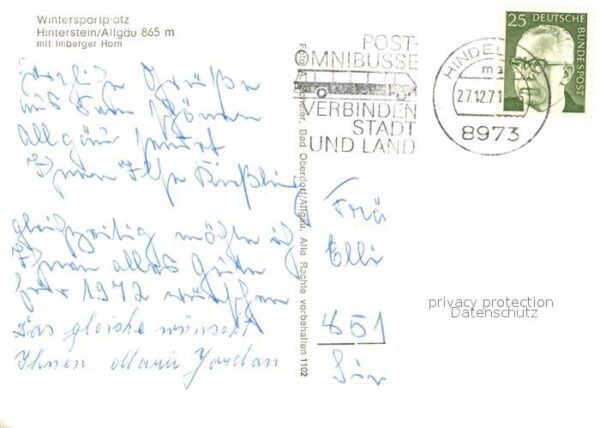 Wintersportplatz
Hinterstein/Allgäu 865 m
mit Imberger Horn
Herzliche Grüße
aus dem schönen
Allgäu sendet
Ihnen Ilse
gleichzeitig möchte ich
Ihnen alles Gute
für 1972 wünschen
Das gleiche wünscht
Ihnen Marie Jordan
Bad Oberdorf/Allgäu. Alle Rechte vorbehalten 1102
POST-
OMNIBUSSE
VERBINDEN
STADT
UND LAND
HINDEL
27.12.71
8973
25 DEUTSCHE
BUNDESPOST
Elli
851
privacy protection
Datenschutz